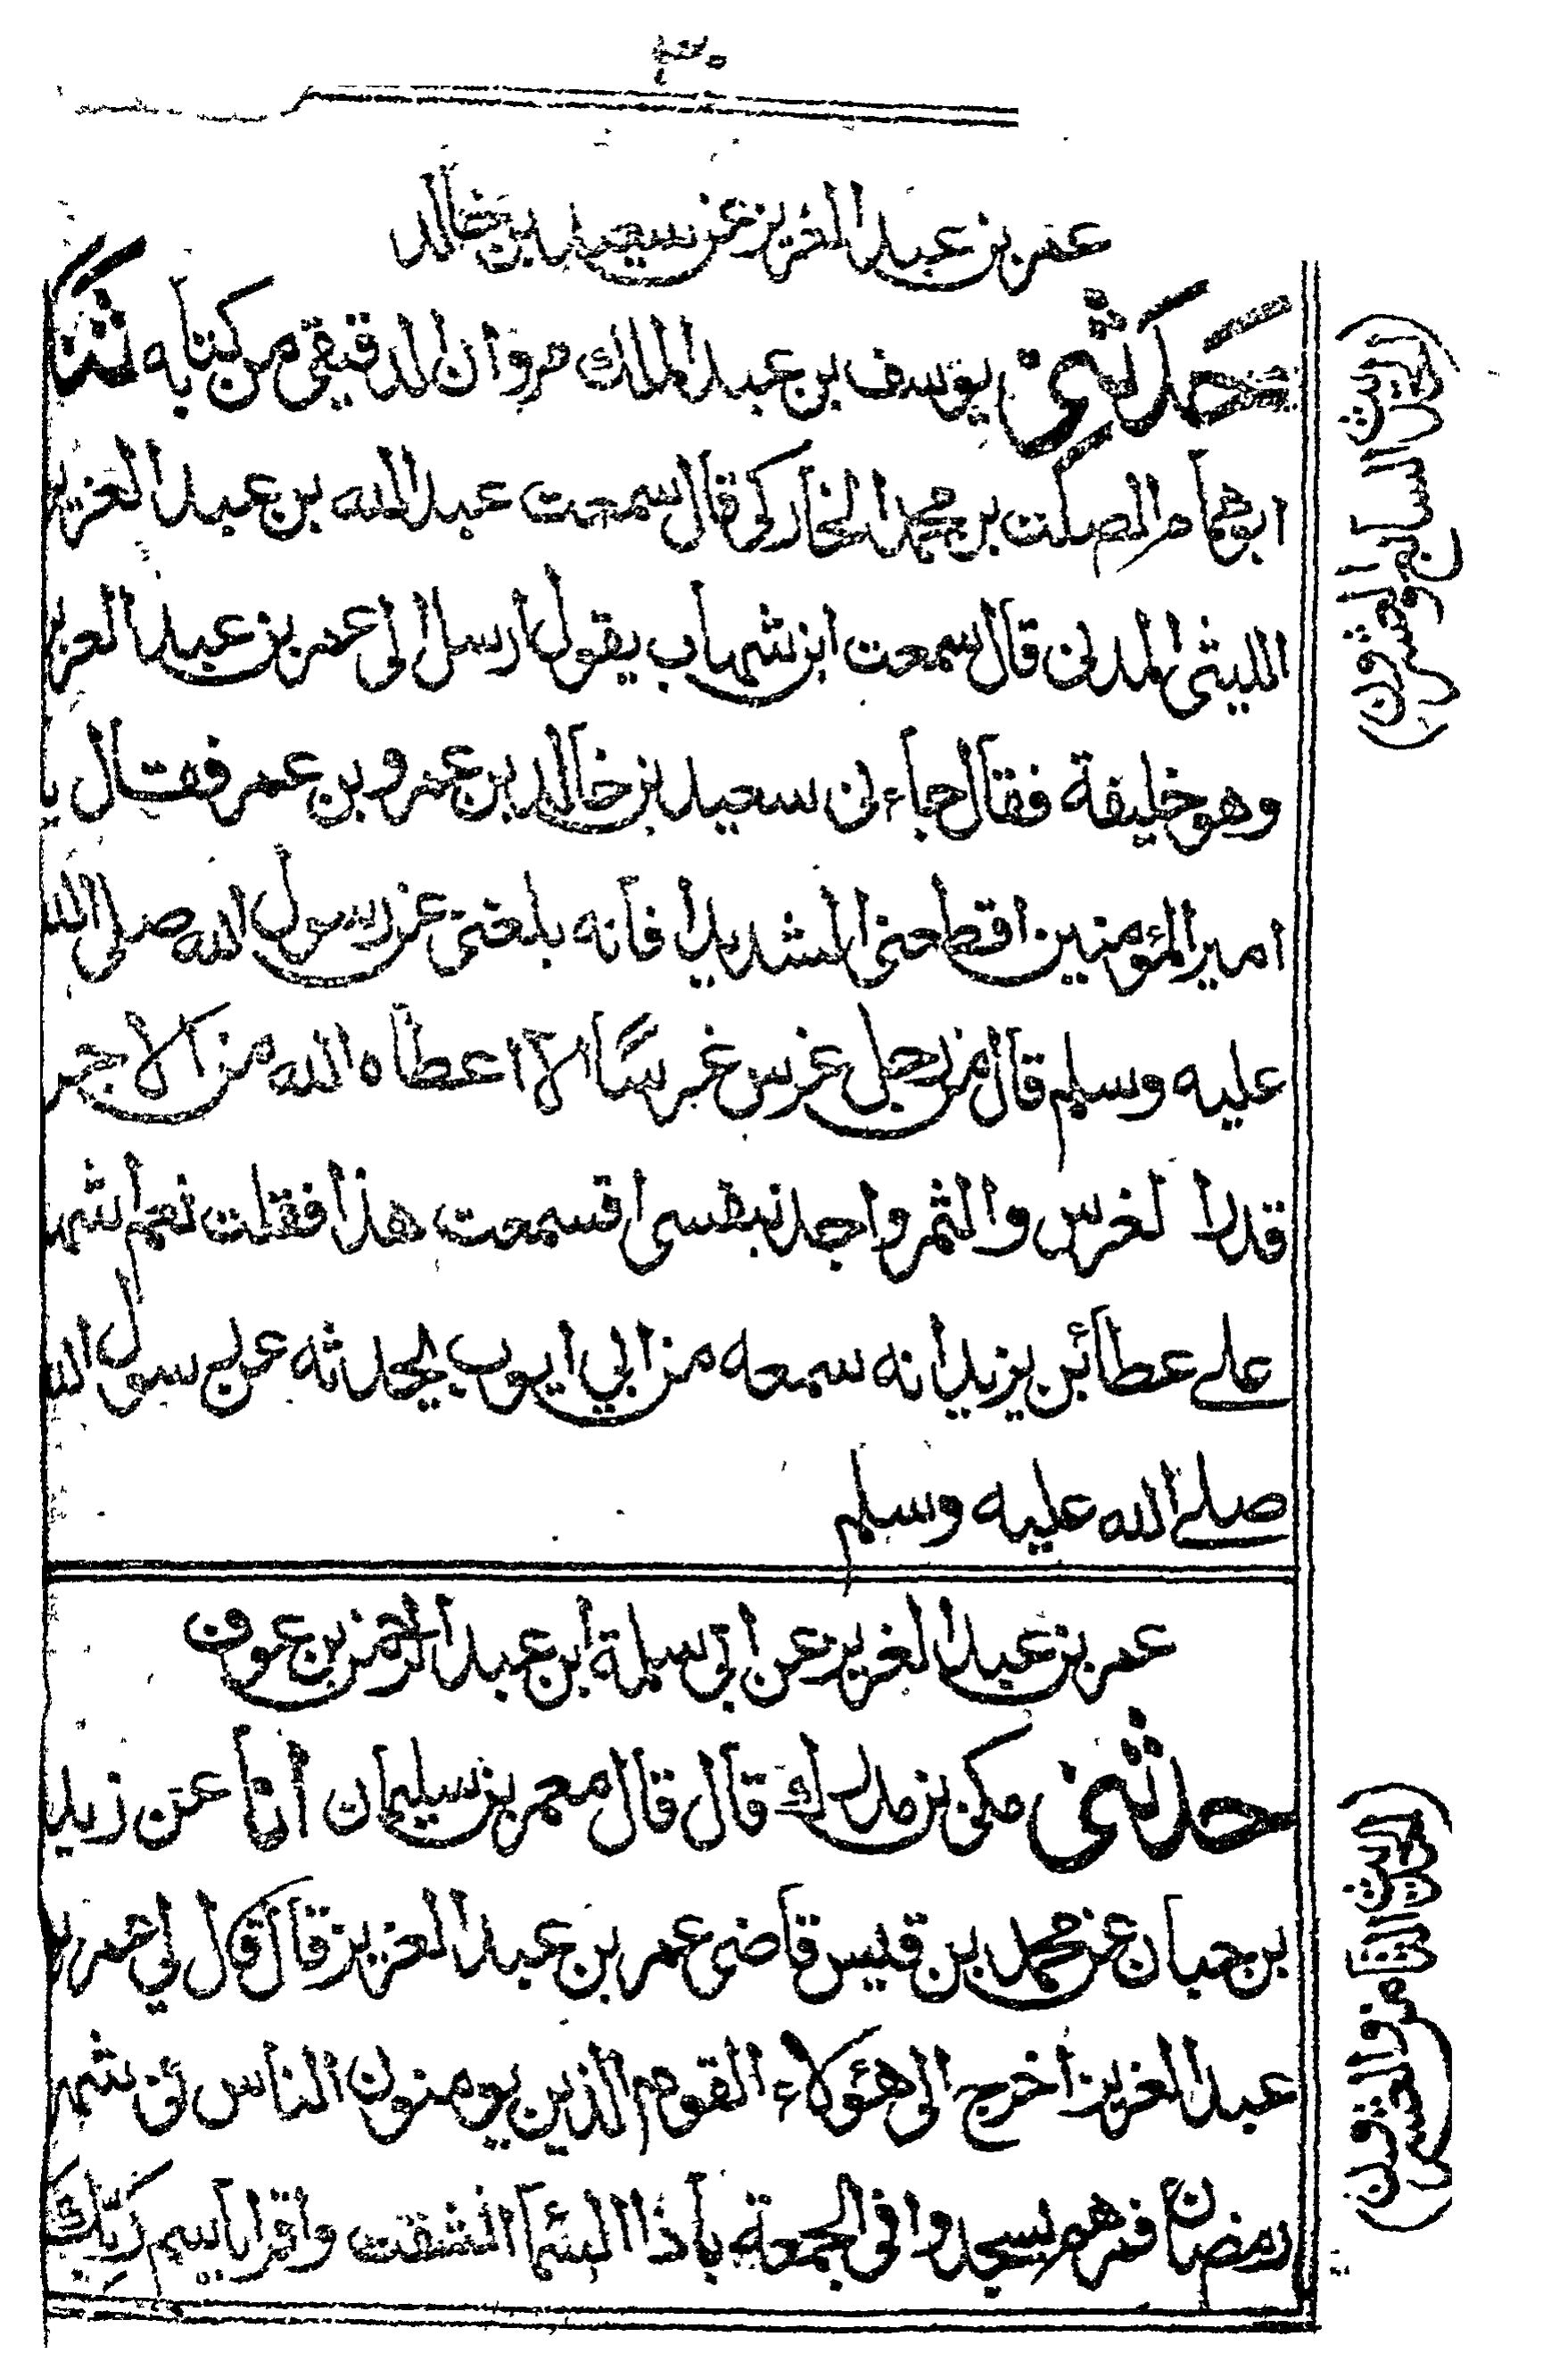 ٣٠
عمر بن عبد العزيز عن سعيد بن خالد
حدثني يوسف بن عبد الملك مروان الدقيقي من كتابه ثنا
ابو همام الصلت بن محمد الخاركي قال سمعت عبد الله بن عبد العزيز
الليثي المدني قال سمعت ابن شهاب يقول ارسل الى عمر بن عبد العزيز
وهو خليفة فقال جاءني سعيد بن خالد بن عمرو بن عمر فقال يا
امير المؤمنين اقطعني المشديدا فانه بلغني عن رسول الله صلى الله
عليه وسلم قال من رجل غرس غرسا الا اعطاه الله من الاجر
قدر الغرس والثمر واجد نبفسى افسمعت هذا فقلت نعم اشهد
على عطائن يزيد انه سمعه من ابي ايوب يحدثه عن رسول الله
صلى الله عليه وسلم
عمر بن عبد العزيز عن ابي سلمة ابن عبد الرحمن بن عوف
حدثني مكي بن مدرك قال قال معمر بن سليمان أنا عن زيد
بن حبان عن محمد بن قيس قاضى عمر بن عبد العزيز قال قال لي عمر بن
عبد العزيز اخرج الى هؤلاء القوم الذين يومنون الناس في شهر
رمضان فمرهم يسجدوا في الجمعة باذا السماء انشقت واقرا باسم ربك
(الحديث السابع والعشرون)
(الحديث الثامن والعشرون)